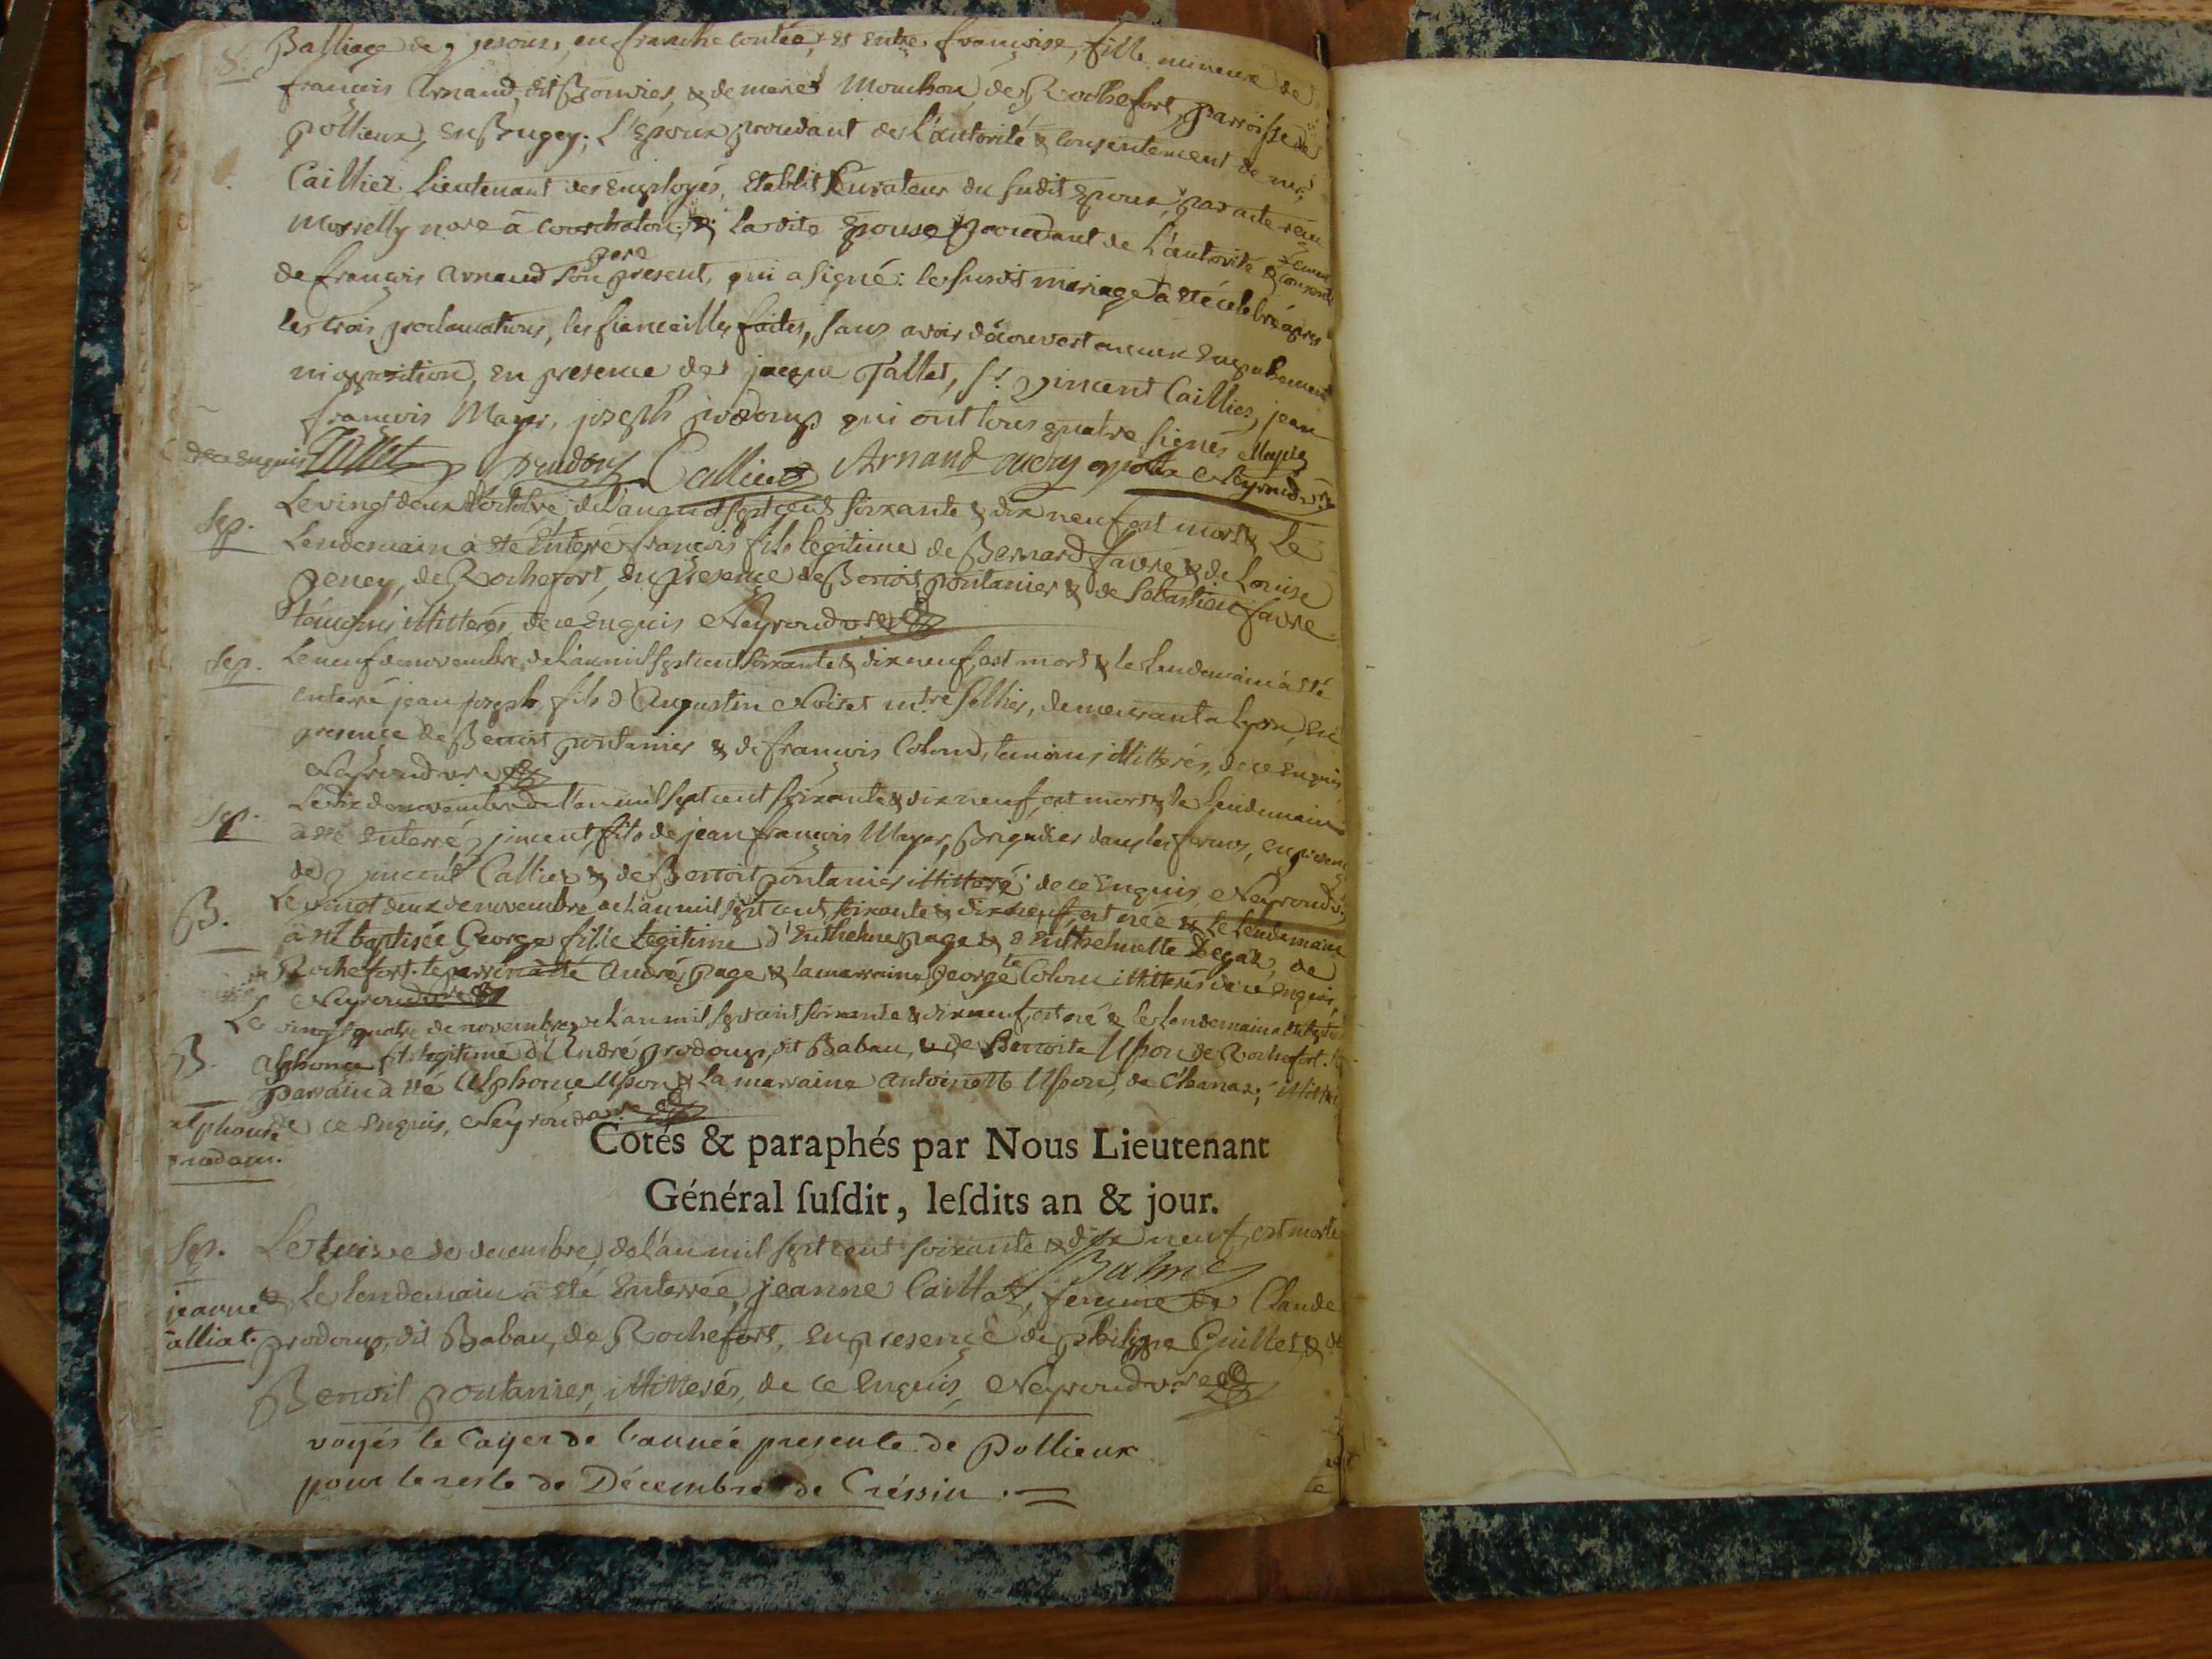 Balliage de vesoux, en franche contée, et entre françoise, fille mineure de
françois Arnaud, dit Bouvier, & de marie Mouchon de Rochefort, parroisse de
pollieux, en Bugey; L'Epoux procedant de L'autorité & consentement de
Caillier Lieutenant des employés, établit Curateur du sudit Epoux, par acte recu
Morrelly nore à Courchaton; & la dite Epouse procedant de L'autorité & consente
de françois Arnaud son pere present, qui a signé: le susdit mariage a été célebré après
les trois proclamations, les fiancailles faites, sans avoir découvert aucun Empechement
ni opposition, en presence de jacque Tallet, Sr. vincent Caillier, jean
françois Mayer, joseph prodomp qui ont tous quatre signés
de ce enquis Tallet prudom Callier Arnand Mayer Neyroud vre
Sep. Le vingt deux d'octobre de L'an mil sept cent soixante & dix neuf est mort & Le
Lendemain a été Enterré françois fils legitime de Bernard favre & de Louise
peney, de Rochefort, en presence de Benoit pontanier & de Sebastien favre
témoins illitterés de ce Enquis Neyroud vre
Sep. Le neuf de novembre de L'an mil sept cent soixante & dix neuf, est mort & le Lendemain a été
enterré jean joseph fils d'Augustin Noiret mtre sellier, demeurant a Lyon, en
presence de Benoit pontanier & de françois Colomd, temoins illitterés, de ce Enquis
Neyroud vre
Sep. Le dix de novembre de l'an mil sept cent soixante & dix neuf, est mort & le Lendemain
a été enterré vincent fils de jean françois Mayer, Brigadier dans les fermes, en presence
de vincent Callier & de Benoit pontanier illitteré de ce Enquis Neyroud vre
B. Le vingt deux de novembre de L'an mil sept cent soixante & dix neuf, est née & Le Lendemain
a été baptisée George fille Legitime d'Enthelme page & d'Enthelmette Degas, de
Rochefort. le parrin a été André page & la marraine Georgete Colom illiterés de ce Enquis,
Neyroud vre
B. Le vingt quatre de novembre de L'an mil sept cent soixante & dix neuf, est né & le Lendemain a été baptisé
Alphonce fils legitime d'André prodomp, dit Baban, & de Benoite Upon de Rochefort. le
parrain a été Alphonce Upon & la marraine antoinette Upon, de
alphonse de ce Enquis, Neyroud vre
prodom.
Cotés & paraphés par Nous Lieutenant
Général ſuſdit, leſdits an & jour.
Balme
Sep. Le treise de decembre, de L'an mil sept cent soixante & dix neuf, est morte
jeanne & Le Lendemain a été Enterrée, jeanne Caillat, femme de Claude
alliat. prodomp, dit Baban, de Rochefort, en presence de philippe Guillet, & de
Benoit pontanier, illitterés, de ce Enquis, Neyroud vre
voyés le Cayer de l'année presente de Pollieux
pour le reste de Décembre de Créssin.